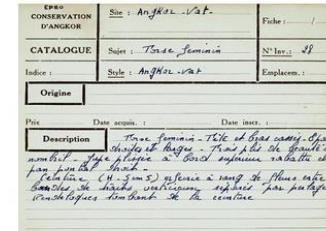 EFEO
CONSERVATION
D'ANGKOR
Site : Angkor-Vat
Fiche :
CATALOGUE
Sujet : Torse féminin
N° Inv. : 28
Indice :
Style : Angkor-Vat
Emplacem. :
Origine
Prix
Date acquis. :
Date inscr. :
Description
Torse féminin - Tête et bras cassés -
droites et larges - Trois plis de beauté
nombril - Jupe plissée à bord supérieur rabattu et
pan
Ceinture orfévrie à rang de fleurs entre
bandes de traits verticaux séparés par
Pendeloques tombant de la ceinture